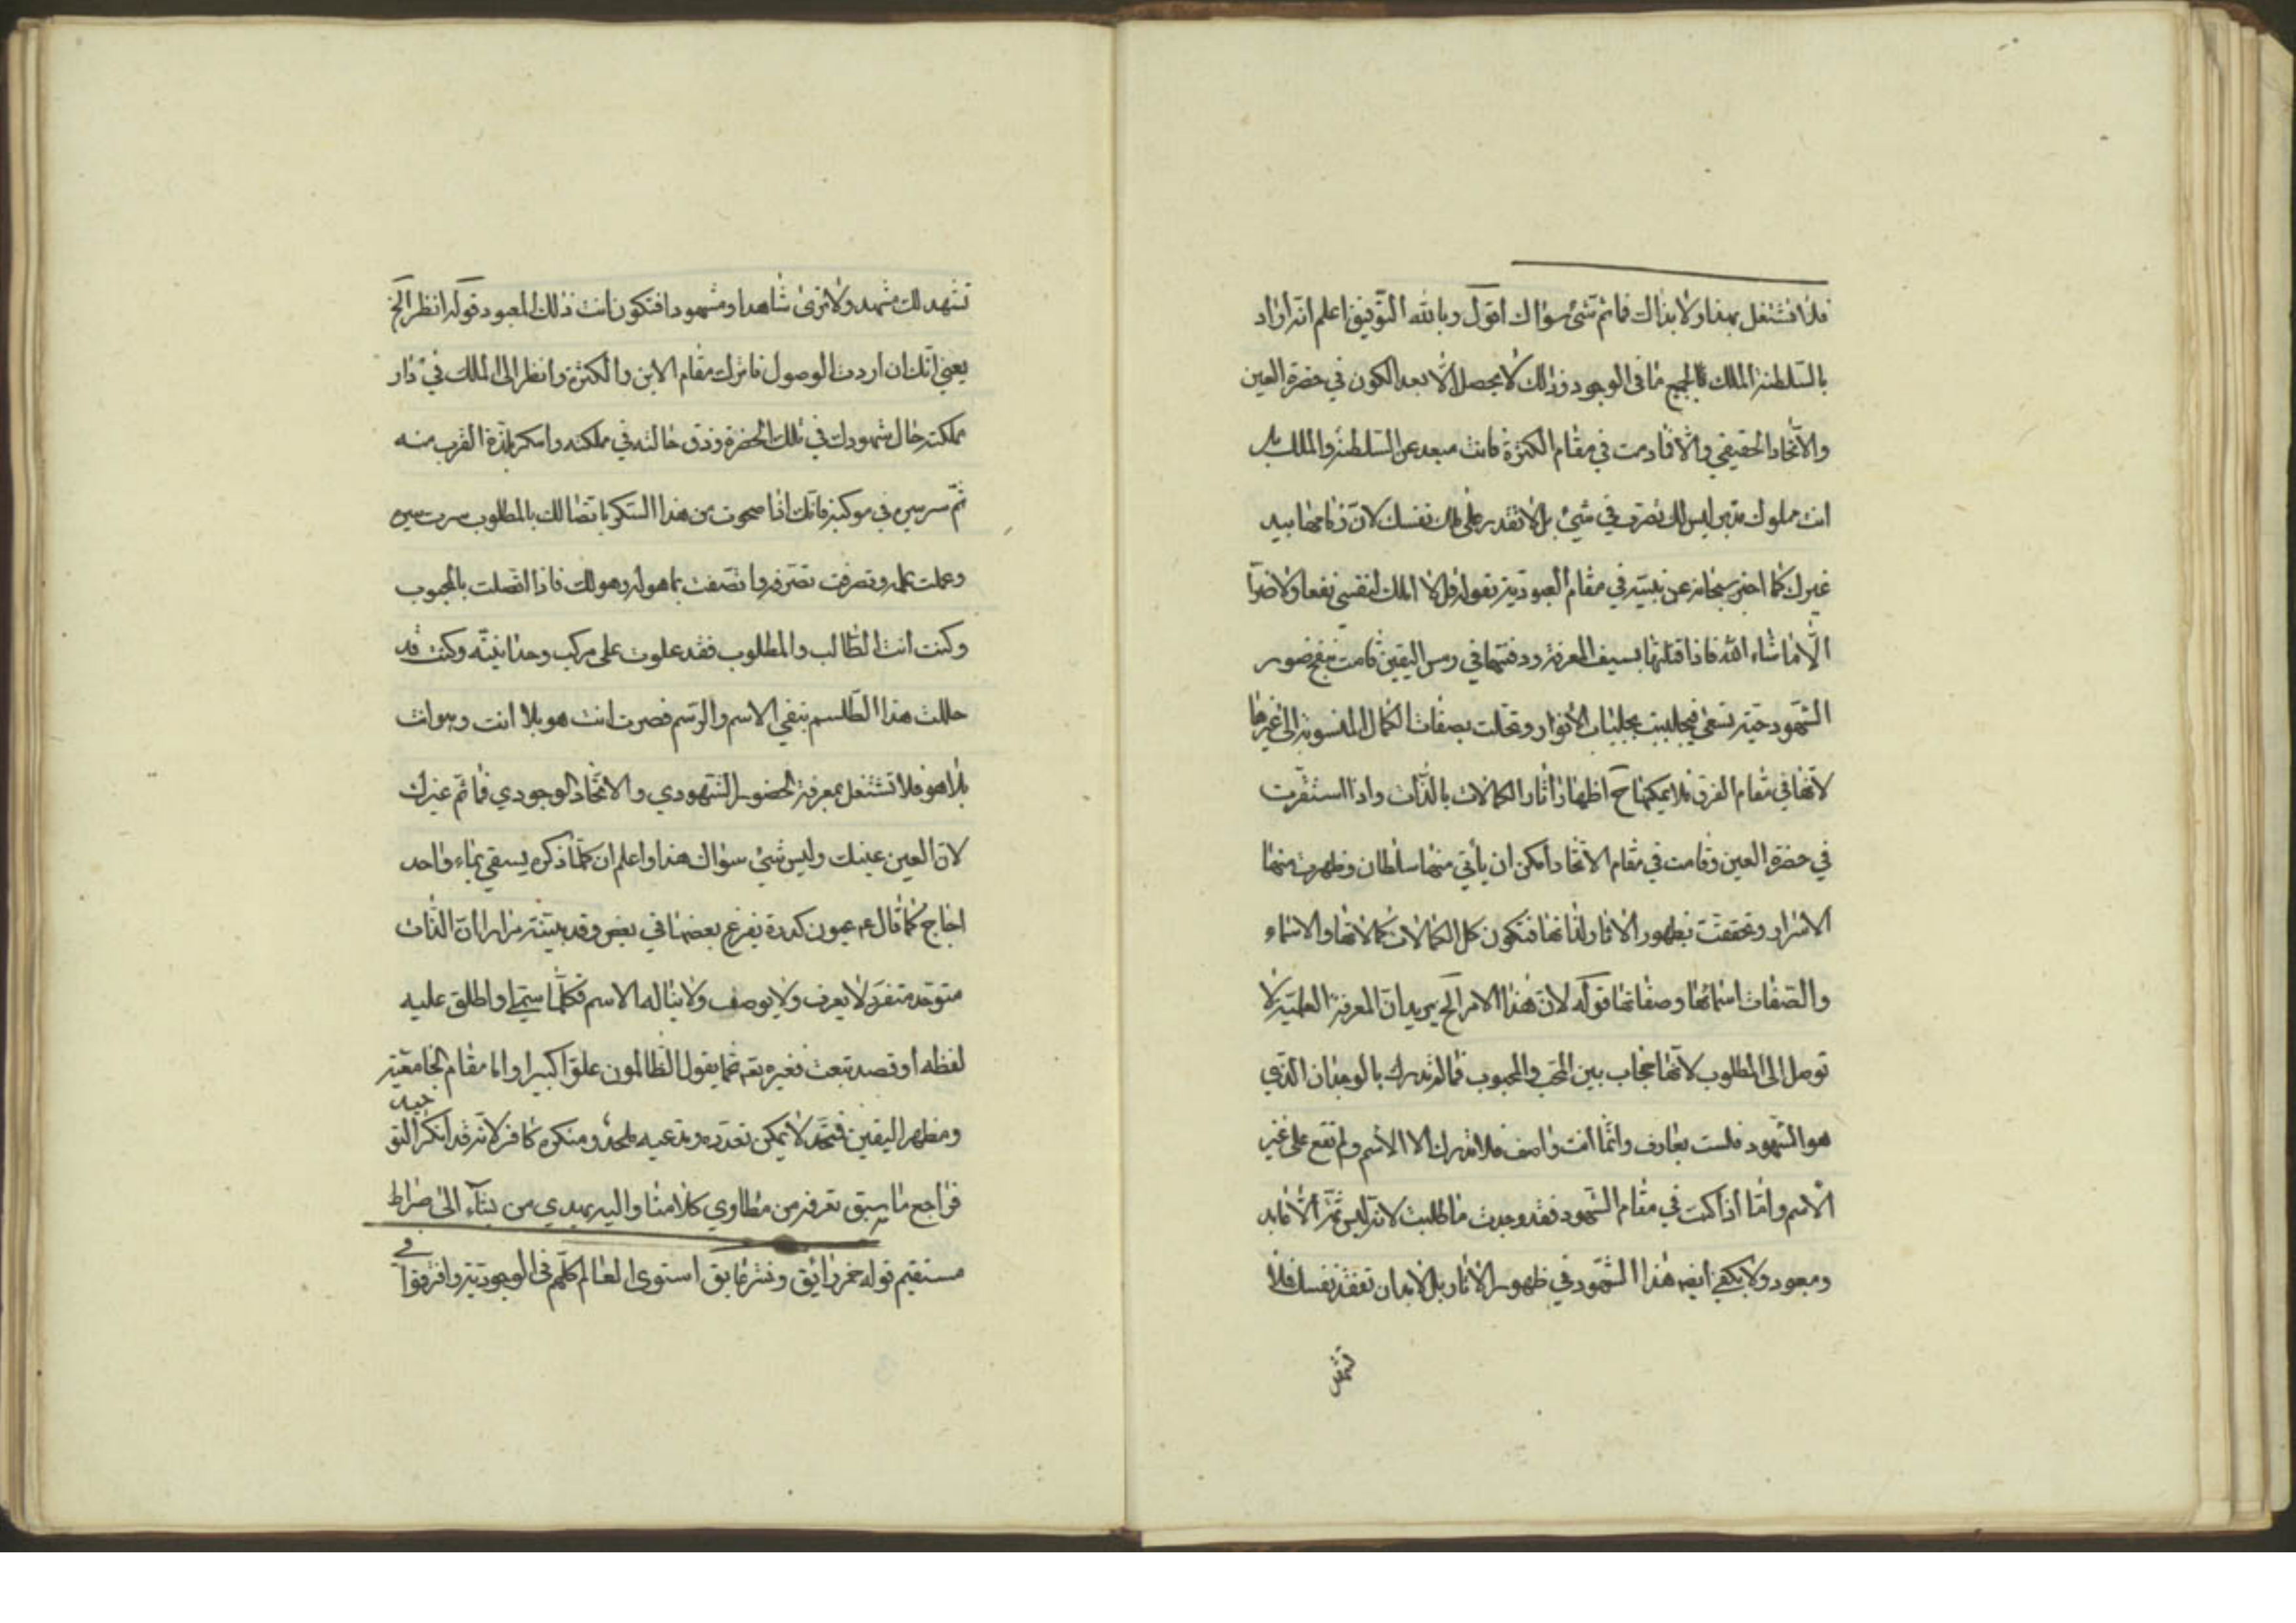 فلا تشتغل بهذا ولا بذاك فما ثم شئ سواك اقول وبالله التوفيق اعلم انه اراد
بالسلطنة الملك لجميع ما فى الوجود وذلك لا يحصل الا بعد الكون في حضرة العين
والاتحاد الحقيقي والا فما دمت في مقام الكثرة فانت مبعد عن السلطنة والملك بل
انت مملوك مدين ليس لك تصرف في شئ بل لا تقدر على ملك نفسك لان زمامها بيد
غيرك كما اخبر سبحانه عن نبيه في مقام العبودية بقوله قل لا املك لنفسي نفعا ولا ضرا
الا ما شاء الله فاذا قتلتها بسيف المعرفة ودفنتها في رمس اليقين قامت بنفخ صور
الشهود حية تسعى فتجلببت بجلباب الأنوار وتحلت بصفات الكمال المنسوبة الى غيرها
لانها في مقام الفرق فلا يمكنها ح اظهار اثار الكمالات بالذات واذا استقرت
في حضرة العين وقامت في مقام الاتحاد أمكن ان يأتي منها سلطان وظهرت منها
الاسرار وتحققت بظهور الاثار لذاتها فتكون كل الكمالات كمالاتها والاسماء
والصفات اسمائها وصفاتها قوله لان هذا الامر الخ يريد ان المعرفة العلمية لا
توصل الى المطلوب لانها حجاب بين المحب والمحبوب فما لم تدرك بالوجدان الذي
هو الشهود فلست بعارف وانما انت واصف فلا تدرك الا الاسم ولم تقع على غير
الاسم واما أذا كنت في مقام الشهود فقد وجدت ما طلبت لانه ليس ثم الا عابد
ومعبود ولا يكفي ايضه هذا الشهود في ظهور الاثار بل لا بد ان تفقد نفسك فلا
تشهد
تشهد لك مشهد ولا ترى شاهدا ومشهودا فتكون انت ذلك المعبود قوله انظر الخ
يعني انك ان اردت الوصول فاترك مقام الاين والكثرة وانظر الى الملك في دار
مملكته حال شهودك في تلك الحضرة وذق حالته في مملكته واسكر بلذة القرب منه
ثم سر سيره في موكبه فانك اذا صحوت من هذا السكر باتصالك بالمطلوب سرت سيره
وعملت عمله وتصرفت تصرفه واتصفت بما هو له وهو لك فاذا اتصلت بالمحبوب
وكنت أنت الطالب والمطلوب فقد علوت على مركب وحدانيته وكنت قد
حللت هذا الطلسم بنفي الاسم والرسم فصرت انت هو بلا انت وهو انت
بلا هو فلا تشتغل بمعرفة الحضور الشهودي والاتحاد الوجودي فما ثم غيرك
لان العين عينك وليس شئ سواك هذا واعلم ان كلما ذكره يسقي بماء واحد
اجاج كما قال عم عيون كدرة يفرغ بعضها في بعض وقد بينته مرارا لان الذات
متوحد متفرد لا يعرف ولا يوصف ولا يناله الاسم فكلما سمي او اطلق عليه
لفظه او قصد بنعت فغيره تعه عما يقول الظالمون علوا كبيرا واما مقام الجامعية
ومظهر اليقين فمتحد لا يمكن تعدده ومدعيه ملحد ومنكره كافر لانه قد انكر التو
حيد
فراجع ما سبق تعرفه من مطاوي كلامنا واليه يهدي من يشآء الى صراط
مستقيم قوله خمر رائق ونثر عابق استوى العالم كلهم في الوجودية وافترقوا
في